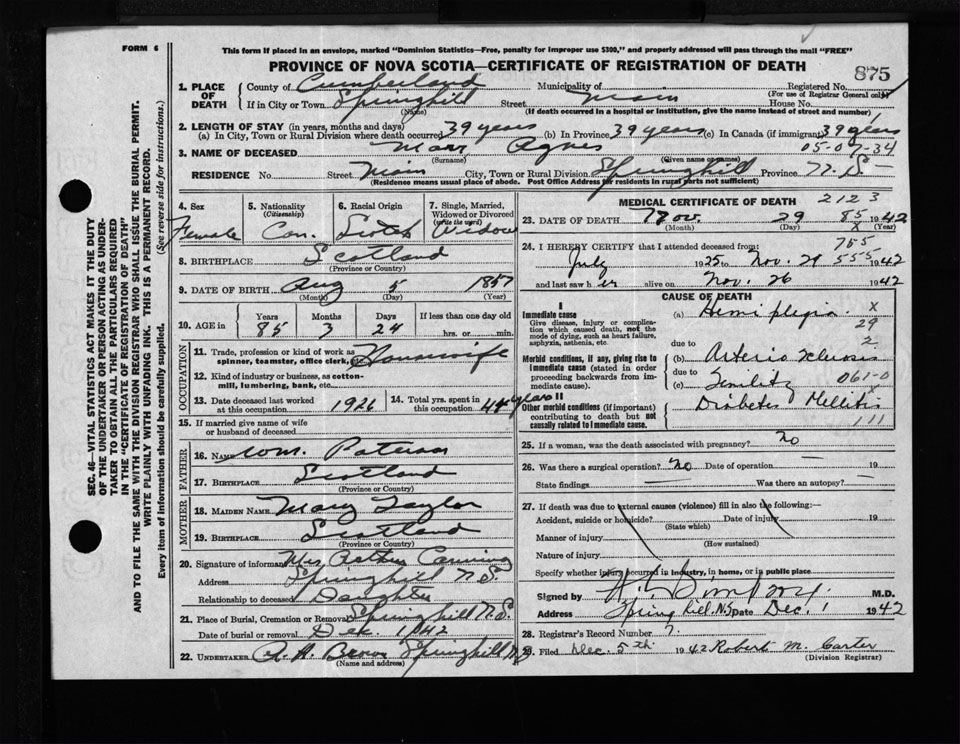 FORM 6
This form if placed in an envelope, marked "Dominion Statistics—Free, penalty for improper use $300," and properly addressed will pass through the mail "FREE"
PROVINCE OF NOVA SCOTIA—CERTIFICATE OF REGISTRATION OF DEATH
875
SEC. 46—VITAL STATISTICS ACT MAKES IT THE DUTY
OF THE UNDERTAKER OR PERSON ACTING AS UNDER-
TAKER TO OBTAIN ALL THE PARTICULARS REQUIRED
IN THE "CERTIFICATE OF REGISTRATION OF DEATH"
AND TO FILE THE SAME WITH THE DIVISION REGISTRAR WHO SHALL ISSUE THE BURIAL PERMIT.
WRITE PLAINLY WITH UNFADING INK. THIS IS A PERMANENT RECORD.
Every item of Information should be carefully supplied. (See reverse side for instructions.)
1. PLACE OF DEATH
County of Cumberland Municipality of Registered No.
(For use of Registrar General only)
If in City or Town Springhill Street Main House No.
(Name) (If death occurred in a hospital or institution, give the name instead of street and number)
2. LENGTH OF STAY (in years, months and days)
(a) In City, Town or Rural Division where death occurred 39 years (b) In Province 39 years (c) In Canada (if immigrant) 39 years
3. NAME OF DECEASED Marr Agnes 05-07-34
(Surname) (Given name or names)
RESIDENCE No. Street Main City, Town or Rural Division Springhill Province N.S.
(Residence means usual place of abode. Post Office Address for residents in rural parts not sufficient)
4. Sex Female
5. Nationality (Citizenship) Can.
6. Racial Origin Scotch
7. Single, Married, Widowed or Divorced (write the word) Widow
8. BIRTHPLACE Scotland
(Province or Country)
9. DATE OF BIRTH Aug 5 1857
(Month) (Day) (Year)
10. AGE in Years Months Days If less than one day old
85 3 24 hrs. or min.
OCCUPATION
11. Trade, profession or kind of work as spinner, teamster, office clerk, etc. Housewife
12. Kind of industry or business, as cotton-mill, lumbering, bank, etc.
13. Date deceased last worked at this occupation 1926
14. Total yrs. spent in this occupation 44 years
15. If married give name of wife or husband of deceased
FATHER
16. NAME Wm. Paterson
17. BIRTHPLACE Scotland
(Province or Country)
MOTHER
18. MAIDEN NAME Mary Taylor
19. BIRTHPLACE Scotland
(Province or Country)
20. Signature of informant Mrs Arthur Canning
Address Springhill N.S.
Relationship to deceased Daughter
21. Place of Burial, Cremation or Removal Springhill N.S.
Date of burial or removal Dec. 1/42
22. UNDERTAKER A. H. Brown Springhill N.S
(Name and address)
MEDICAL CERTIFICATE OF DEATH 2123
23. DATE OF DEATH Nov. 29 85 1942
(Month) (Day) X (Year)
24. I HEREBY CERTIFY that I attended deceased from: 755
July 1925 to Nov. 29 555 1942
and last saw her alive on Nov. 26 1942
CAUSE OF DEATH
I
Immediate cause
Give disease, injury or complication which caused death, not the mode of dying, such as heart failure, asphyxia, asthenia, etc.
(a) Hemiplegia X
29
due to 2
Morbid conditions, if any, giving rise to immediate cause (stated in order proceeding backwards from immediate cause).
(b) Arterio Sclerosis
due to
(c) Senility 061-0
II
Other morbid conditions (if important) contributing to death but not causally related to immediate cause.
Diabetes Mellitis
111
25. If a woman, was the death associated with pregnancy? no
26. Was there a surgical operation? no Date of operation — 19
State findings — Was there an autopsy? —
27. If death was due to external causes (violence) fill in also the following:—
Accident, suicide or homicide? Date of injury 19
(State which)
Manner of injury
(How sustained)
Nature of injury
Specify whether injury occurred in industry, in home, or in public place
Signed by M.D.
Address Spring hill, N.S. Date Dec. 1 1942
28. Registrar's Record Number 7.
29. Filed Dec. 5th 1942 Robert M. Carter
(Division Registrar)